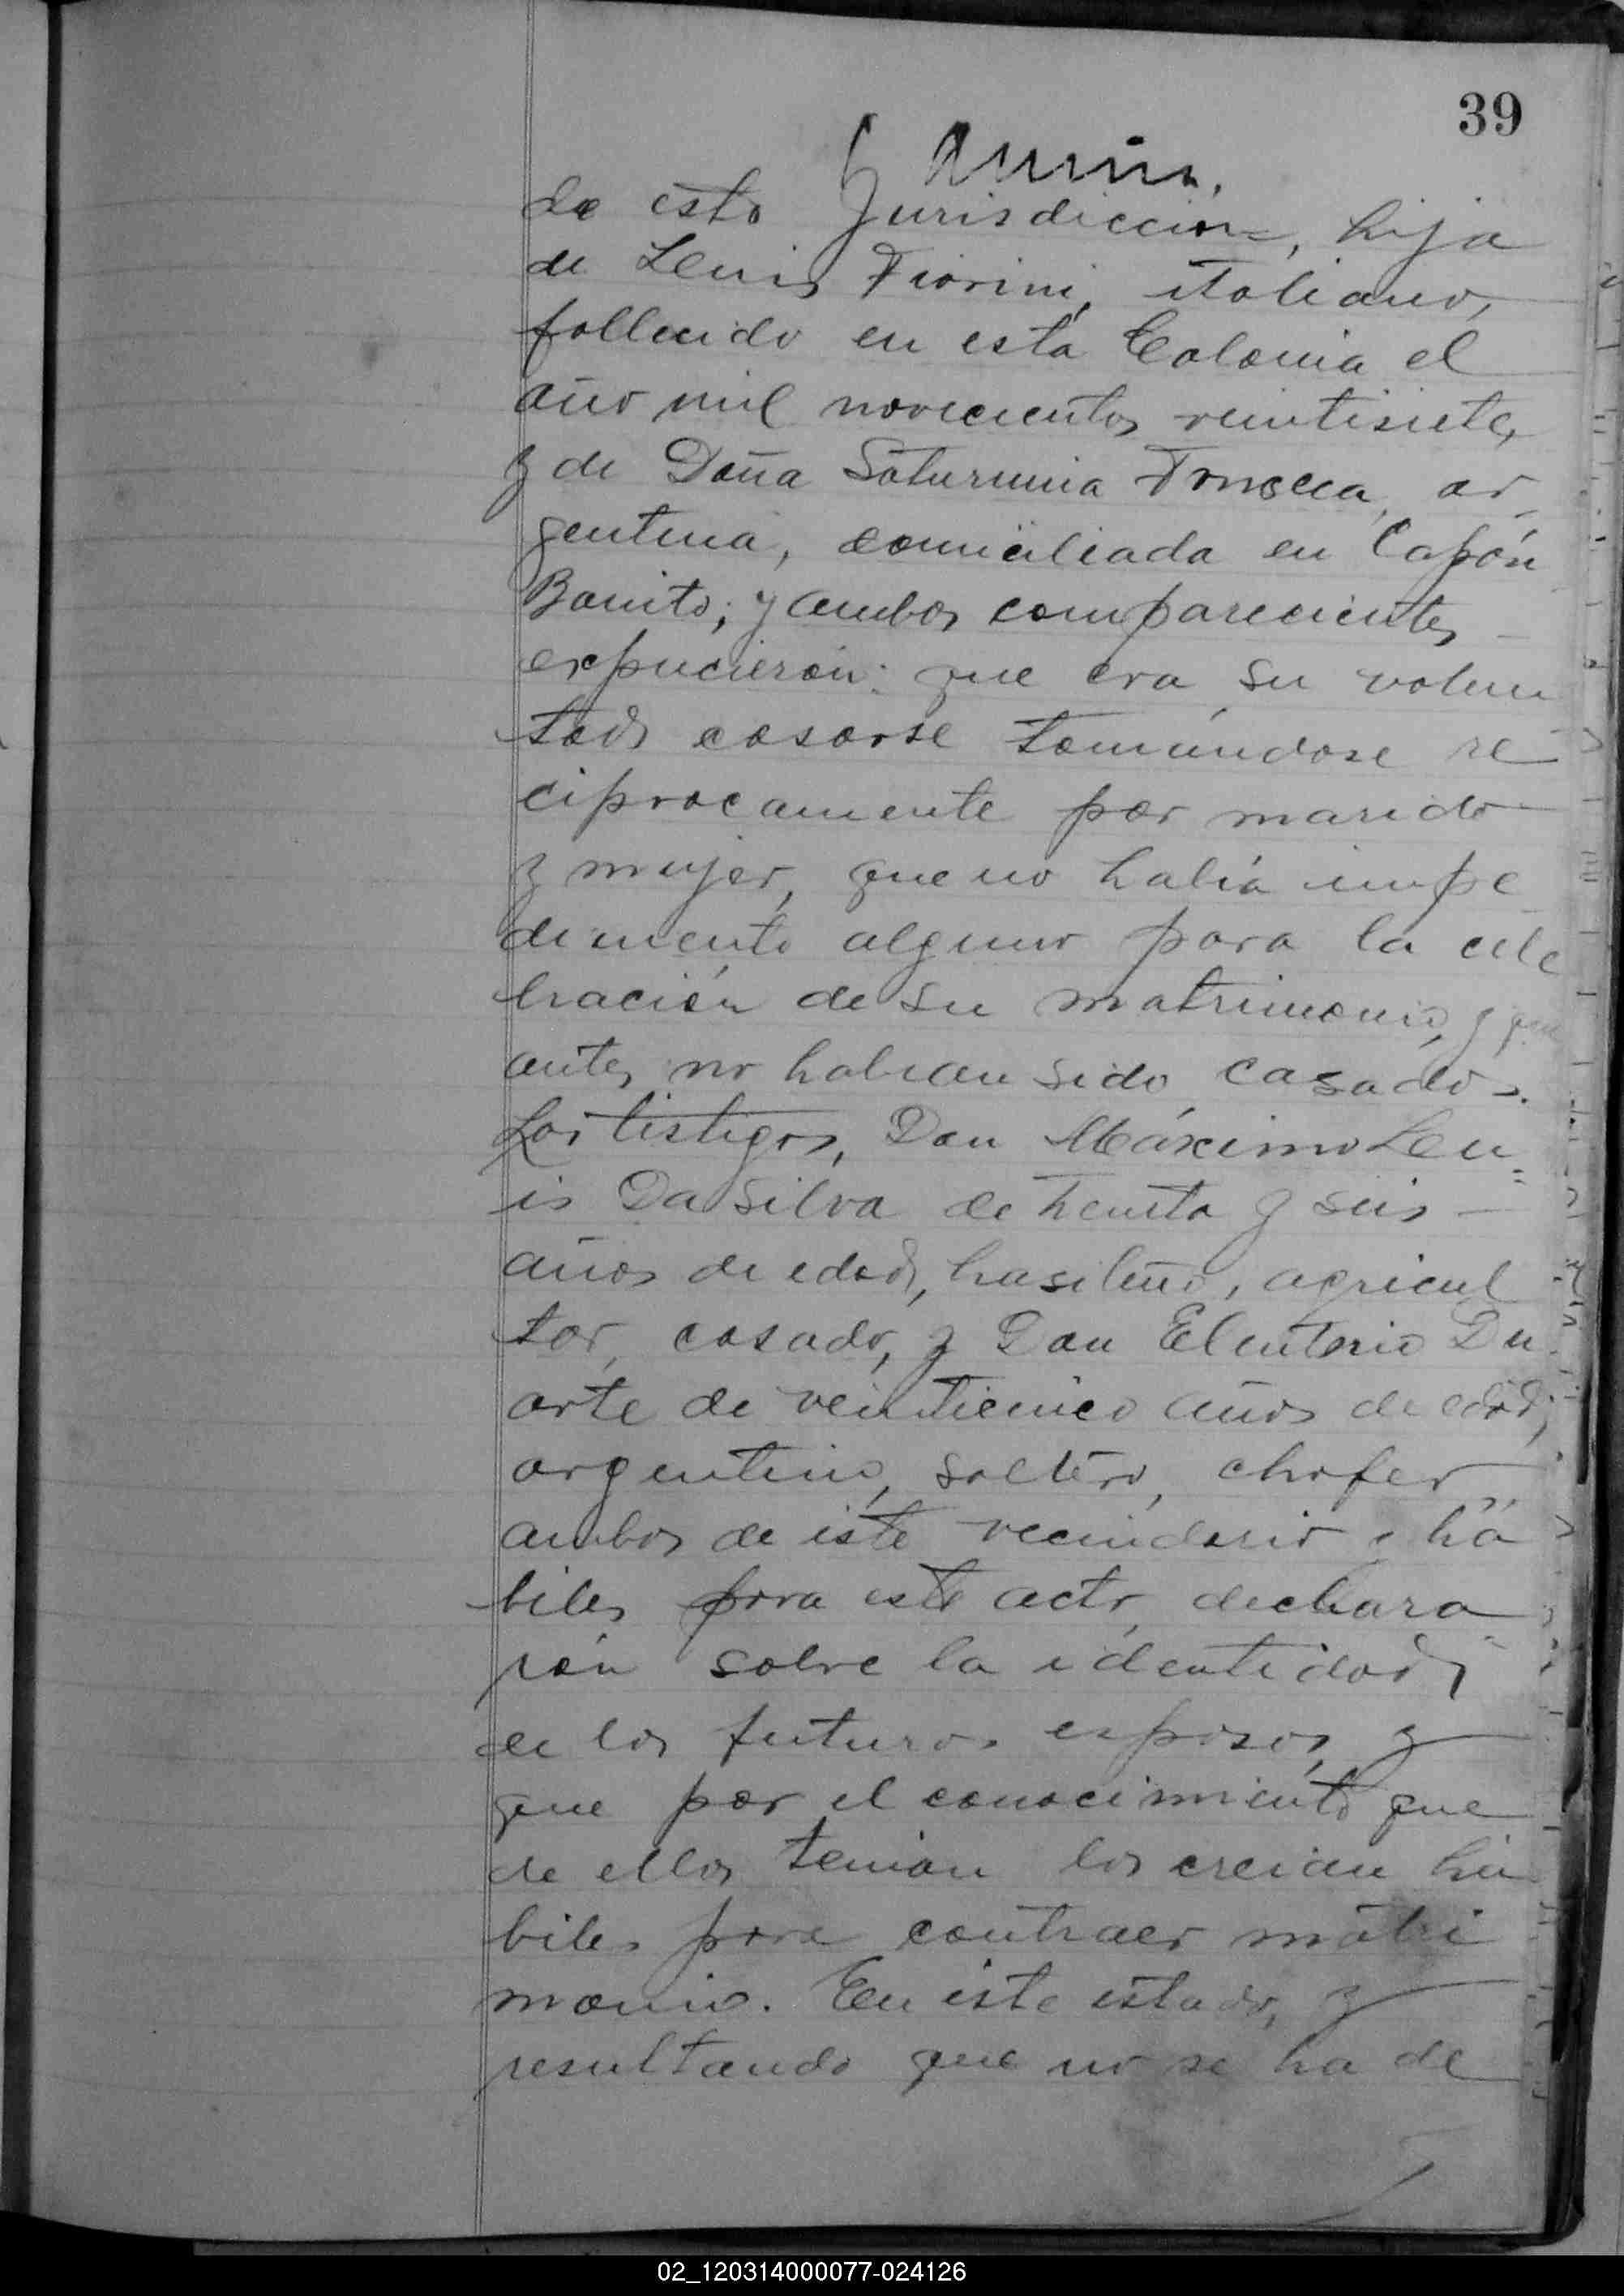 39
de esta Jurisdicción, hija
de Luis Fiorini, italiano,
fallecido en esta Colonia el
año mil novecientos veintisiete,
y de Doña Saturnina Fonseca, ar
gentina, domiciliada en Capón
Bonito; y ambos comparecientes
expucieron: que era su volun
tad casarse tomándose re
ciprocamente por marido
y mujer, que no había impe
dimento alguno para la cele
bración de su matrimonio, y que
antes no habian sido casados.
Los testigos, Don Máximo Lu=
is Da Silva de treinta y seis
años de edad, brasileño, agricul
tor, casado, y Don Eleuterio Du
arte de veinticinco años de edad,
argentino, soltero, chofer,
ambos de este vecindario, há
biles para este acto, declara
rón sobre la identidad
de los futuros esposos, y
que por el conocimiento que
de ellos tenian los creian há
biles para contraer matri
monio. En este estado, y
resultando que no se ha de
02_120314000077-024126